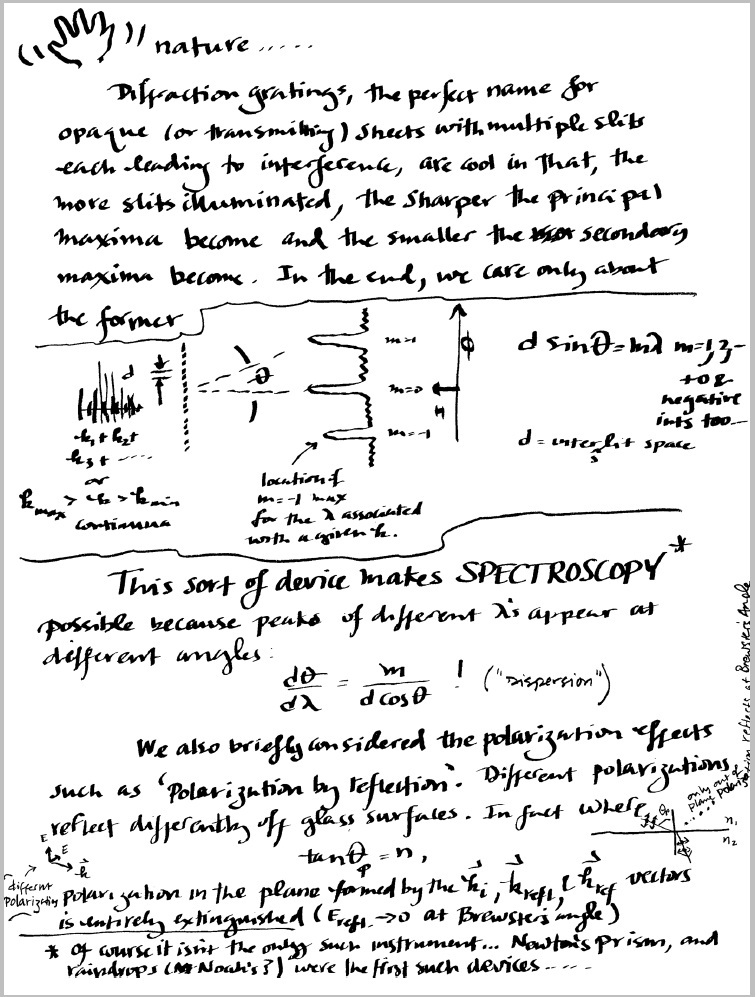 nature.....
Diffraction gratings, the perfect name for
opaque (or transmitting) sheets with multiple slits
each leading to interference, are cool in that, the
more slits illuminated, the sharper the principal
maxima become and the smaller the secondary
maxima become. In the end, we care only about
the former
d
θ
m=1
m=0
m=-1
Φ
d sinθ=mλ m=1,2,-
+0 &
negative
ints too--
d = interslit space
k1 + k2+
k3 + ....
or
kmax > k > kmin
continuua
location of
m=-1 max
for the λ associated
with a given k.
This sort of device makes SPECTROSCOPY*
possible because peaks of different λ's appear at
different angles:
dθ/dλ = m/d cosθ ! ("Dispersion")
We also briefly considered the polarization effects
such as 'Polarization by reflection'. Different polarizations
reflect differently off glass surfaces. In fact where
only out of
plane polarization reflects at Brewster's Angle
n1
n2
tanθp = n,
E
E
k
different
polarization
polarization in the plane formed by the ki, krefl, & kref vectors
is entirely extinguished (Erefl. → 0 at Brewster's angle)
* Of course it isn't the only such instrument... Newton's prism, and
raindrops (Noah's?) were the first such devices.....